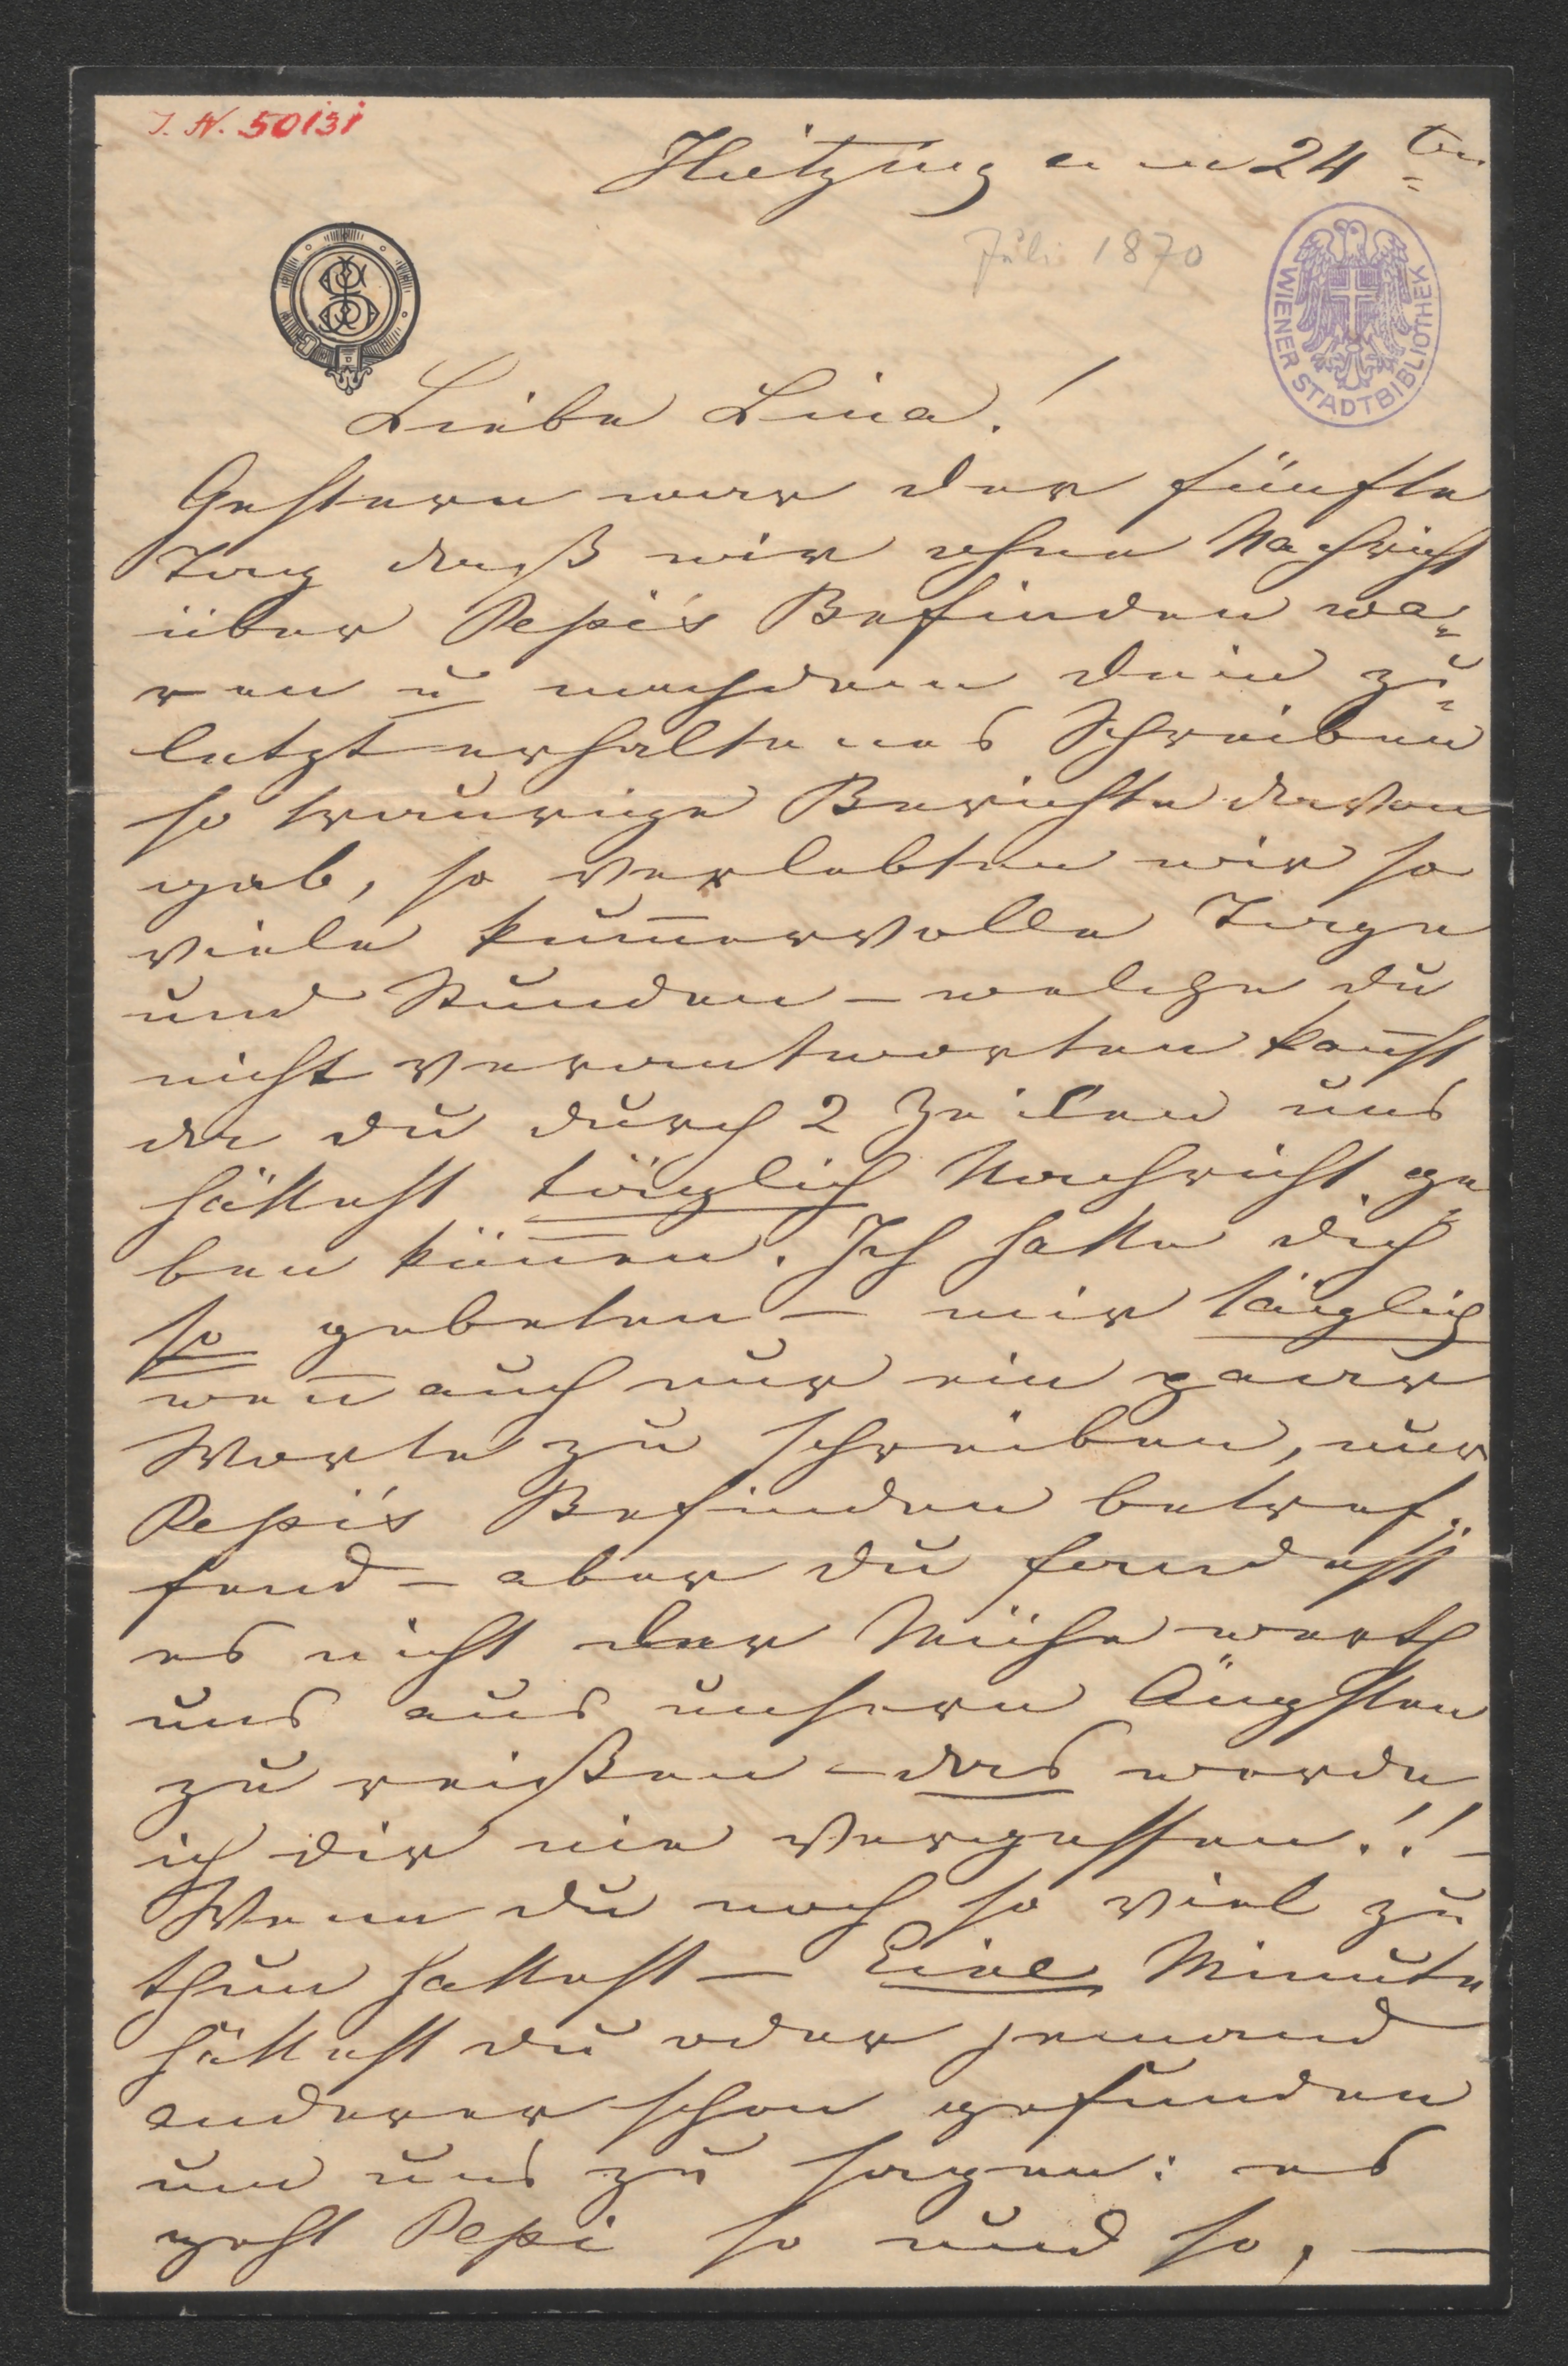 I. N. 50131
Hietzing am 24ten
Juli 1870
WIENER STADTBIBLIOTHEK
Liebe Lina!
Gestern war der fünfte
Tag daß wir ohne Nachricht
über Pepi's Befinden wa=
ren u nachdem dein zu=
letzt erhaltenes Schreiben
so traurige Berichte davon
gab, so verlebten wir so
viele kum̅ervolle Tage
und Stunden – welche du
nicht verantworten kan̅st
da du durch 2 Zeilen uns
hättest täglich Nachricht ge=
ben kön̅en. Ich hatte dich
so gebeten – mir täglich
wen̅ auch nur ein paar
Worte zu schreiben, nur
Pepi's Befinden betref=
fend – aber du fandest
es nicht der Mühe werth
uns aus unsern Ängsten
zu reißen – das werde
ich dir nie vergessen!! –
Wenn du noch so viel zu
thun hattest – Eine Minute
hättest du oder jemand
anderer schon gefunden
um uns zu sagen: es
geht Pepi so und so, –